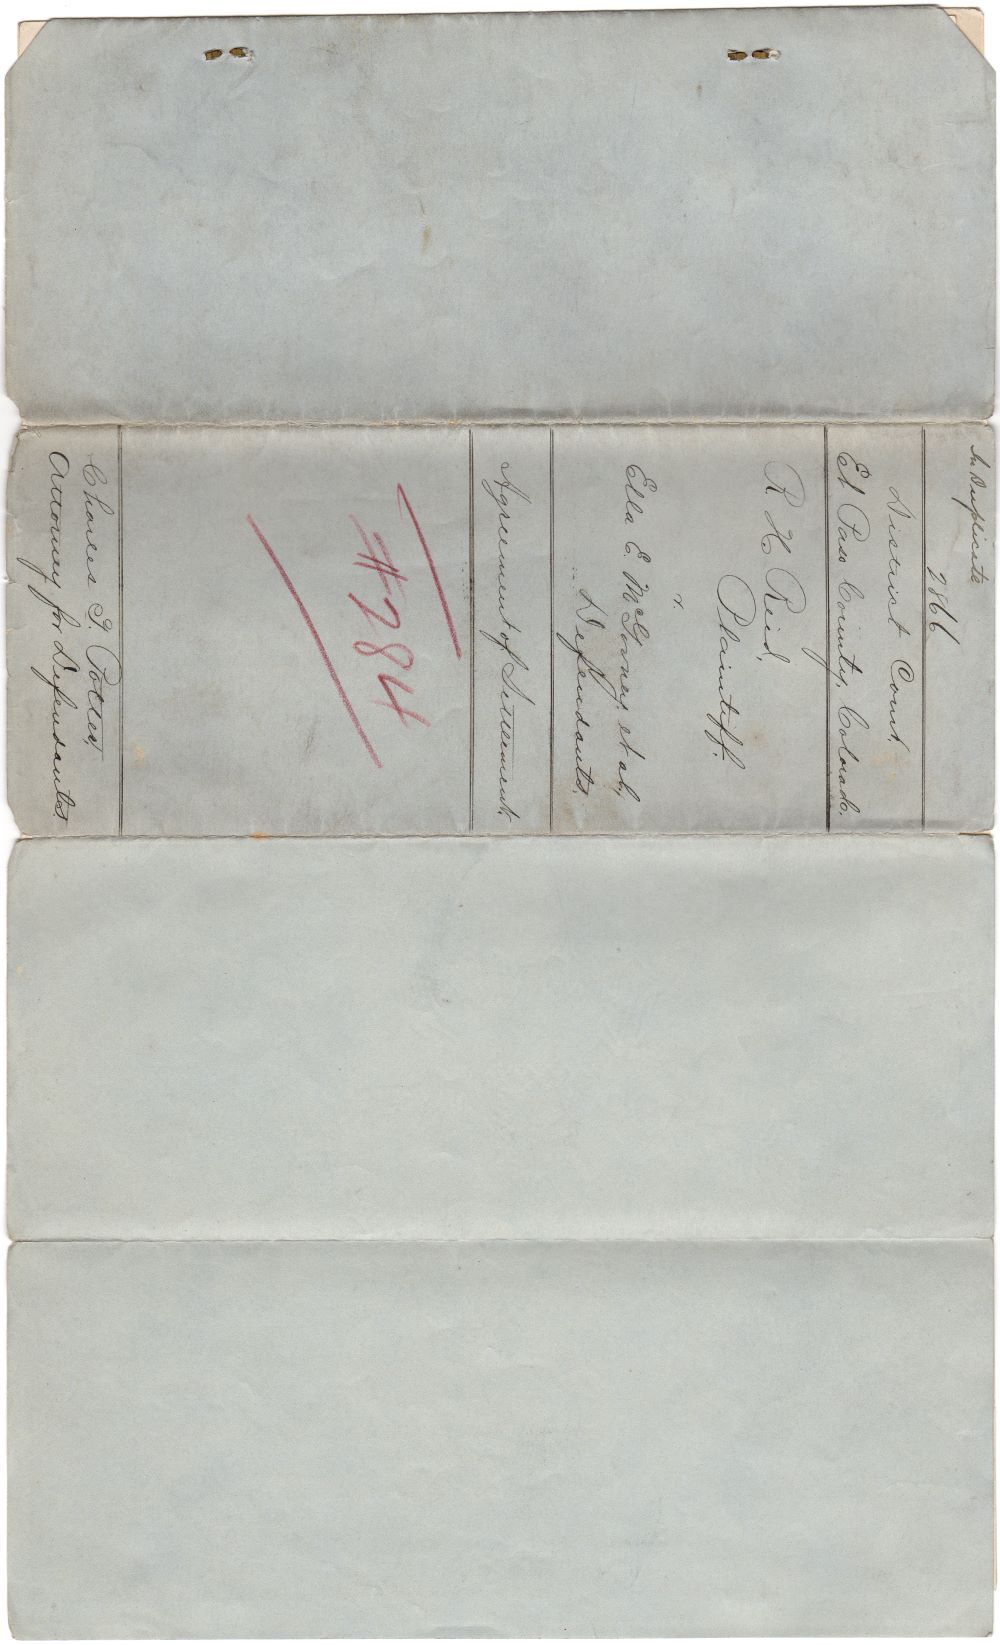 In Duplicate
2866
District Court,
El Paso County, Colorado.
R. H. Reid,
Plaintiff.
v.
Ella E. McGovney, et al,
Defendants.
Agreement of Settlement.
#284
Charles T. Potter,
Attorney for Defendants.